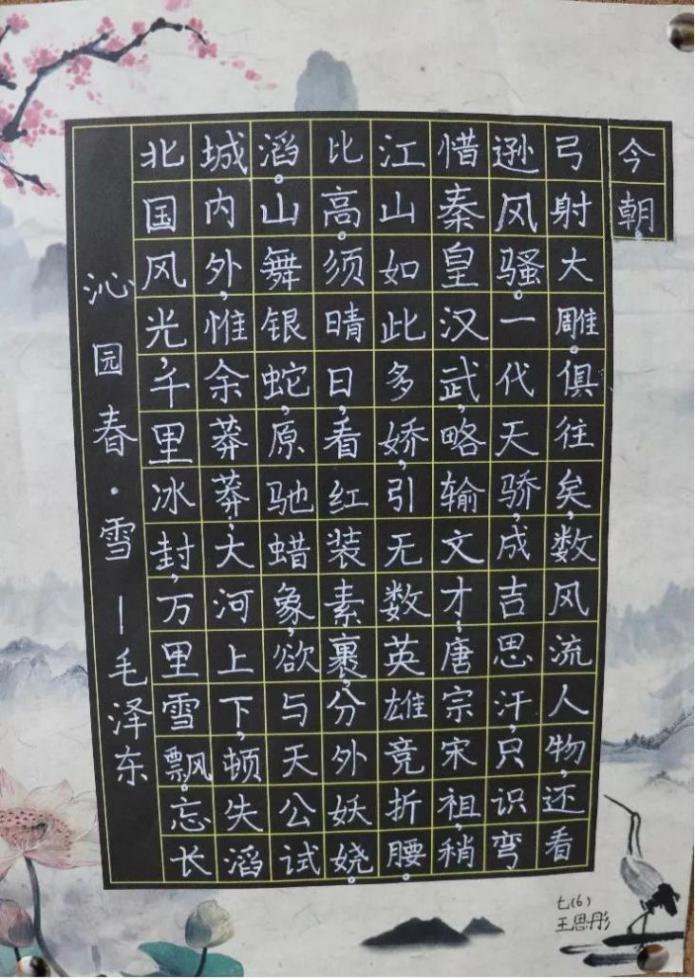 沁园春·雪 —毛泽东
北国风光,千里冰封,万里雪飘。忘长
城内外,惟余莽莽,大河上下,顿失滔
滔。山舞银蛇,原驰蜡象,欲与天公试
比高。须晴日,看红装素裹,分外妖娆。
江山如此多娇,引无数英雄竞折腰。
惜秦皇汉武,略输文才,唐宗宋祖,稍
逊风骚。一代天骄,成吉思汗,只识弯
弓射大雕。俱往矣,数风流人物,还看
今朝。
七(6)
王思彤